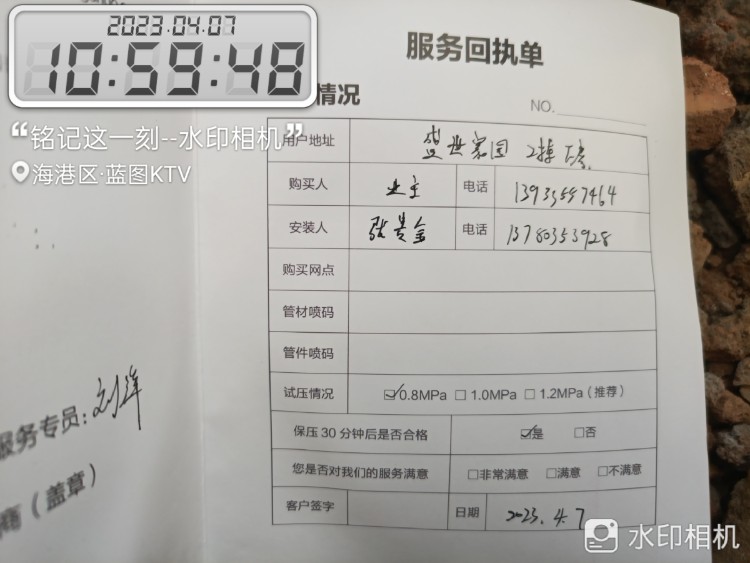 2023.04.07
10:59:48
“铭记这一刻--水印相机”
海港区·蓝图KTV
服务回执单
情况
NO.
用户地址 盛业家园 2楼
购买人 业主 电话 13933557464
安装人 张景金 电话 13780353928
购买网点
管材喷码
管件喷码
试压情况 ☑0.8MPa □1.0MPa □1.2MPa(推荐)
保压30分钟后是否合格 ☑是 □否
您是否对我们的服务满意 □非常满意 □满意 □不满意
客户签字 日期 2023.4.7
服务专员:刘洋
商(盖章)
水印相机